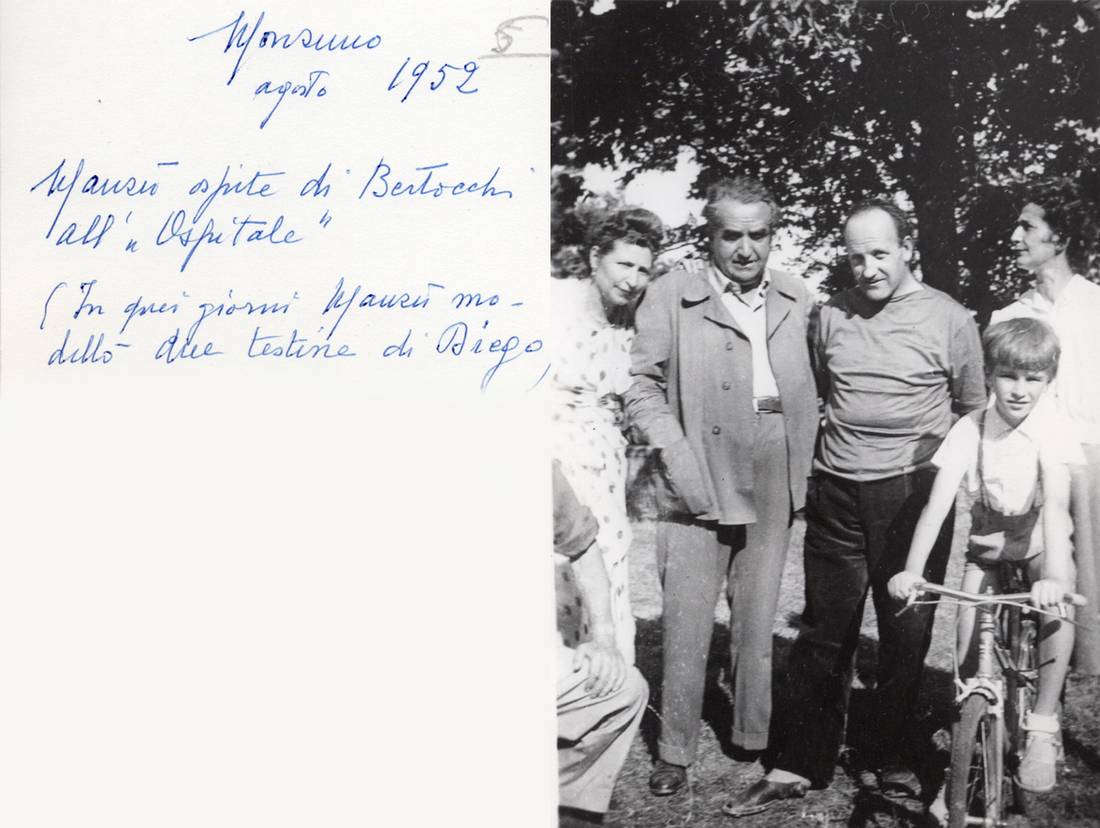 Monzuno
5
agosto 1952
Manzù ospite di Bertocchi
all' „ Ospitale "
( In quei giorni Manzù mo-
dellò due testine di Diego)